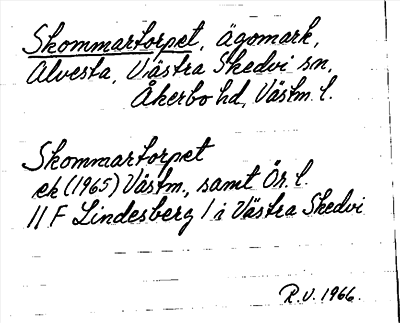 Skommartorpet, ägomark,
Alvesta, Västra Skedvi sn,
Åkerbo hd, Västm. l.
Skommartorpet
ek (1965) Västm., samt Ör. l.
11 F Lindesberg / i Västra Skedvi
R.V. 1966.